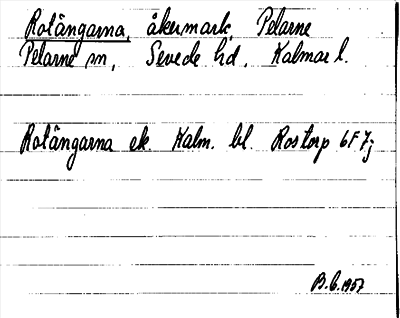 Rotängarna, åkermark, Pelarne
Pelarne sn, Sevede hd, Kalmar l.
Rotängarna ek. Kalm. bl. Rostorp 6F7j
B.G. 1957